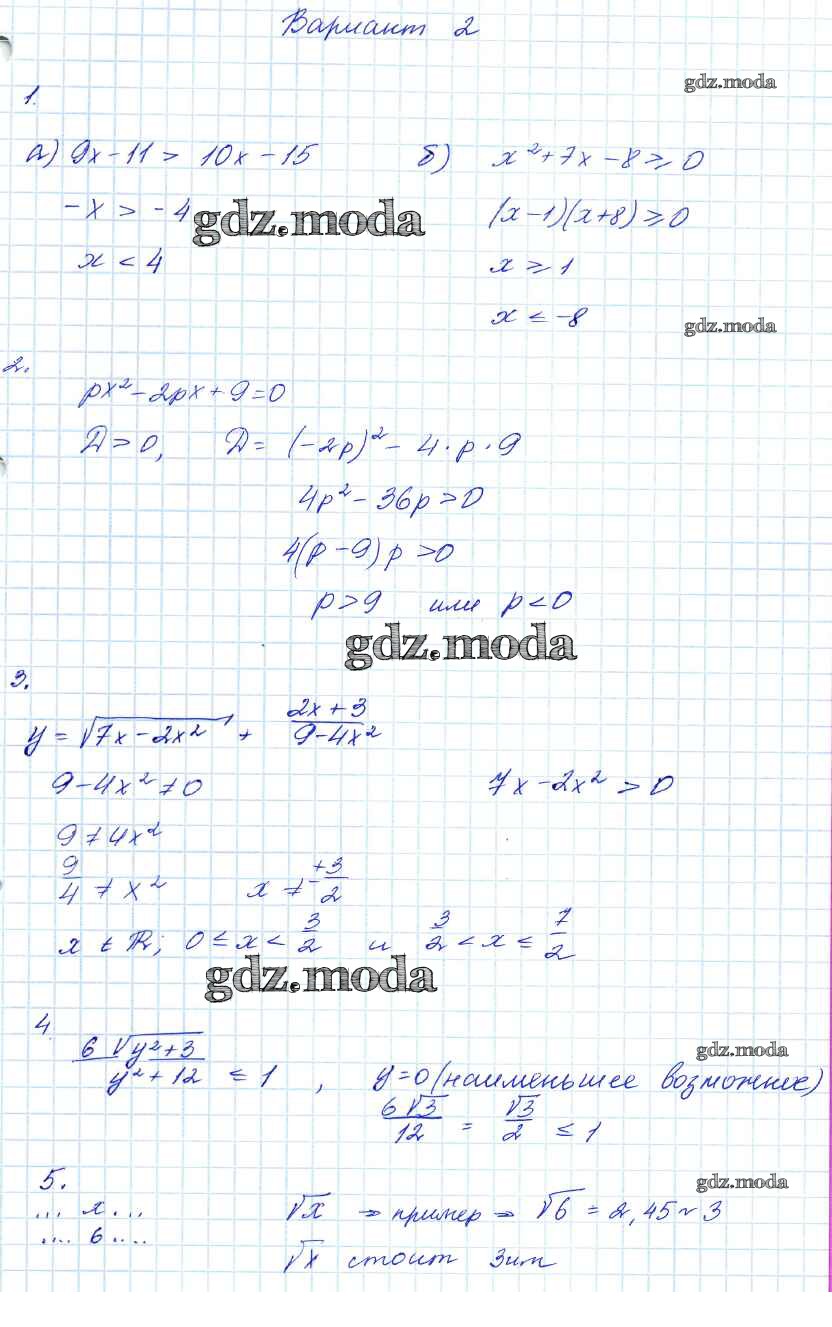 Вариант 2
gdz.moda
1.
а) 9x-11 > 10x-15 б) x²+7x-8 ≥ 0
-x > -4 (x-1)(x+8) ≥ 0
gdz.moda
x < 4 x ≥ 1
x ≤ -8
gdz.moda
2.
px²-2px+9=0
D>0, D= (-2p)²-4·p·9
4p²-36p>0
4(p-9)p>0
p>9 или p<0
gdz.moda
3.
y = √(7x-2x²) + (2x+3)/(9-4x²)
9-4x²≠0 7x-2x² > 0
9≠4x²
9/4 ≠ x² x ≠ ±3/2
x ∈ R; 0 ≤ x < 3/2 и 3/2 < x ≤ 7/2
gdz.moda
4
gdz.moda
6√(y²+3)/(y²+12) ≤ 1, y=0 (наименьшее возможное)
6√3/12 = √3/2 ≤ 1
5.
gdz.moda
... x ... √x → пример → √6 = 2,45 ~ 3
.... 6 ....
√x стоит 3ит